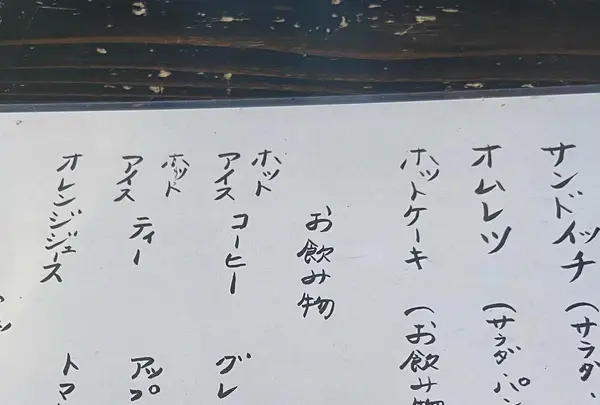 サンドイッチ (サラダ・
オムレツ (サラダ・パン
ホットケーキ (お飲み物
お飲み物
ホット アイス コーヒー グレ
ホット アイス ティー アップ
オレンジジュース トマ